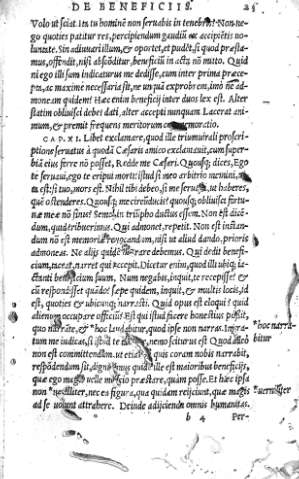 DE BENEFICIIS.
Volo ut sciat. In tu hominē non seruabis in tenebris? Non ne-
go quoties patitur res, percipiendum gaudiũ ac accipiētis uo-
luntate. Sin adiuuari illum, & oportet, et pudēt, si quod præsta-
mus, offendit, nisi abscōditur, beneficiũ in acta nō mitto. Quid
ni ego illi sum indicaturus me dedisse, cum inter prima præce-
pta, ac maximè necessaria sit, ne unquā exprobrem, imò ne ad-
moneam quidem? Hæc enim beneficij inter duos lex est. Alter
statim obliuisci debet dati, alter accepti nunquam Lacerat ani-
mum, & premit frequens meritorum commemoratio.
CAP. XI. Libet exclamare, quod ille triumuirali proscri-
ptione seruatus à quodā Cæsaris amico exclamauit, cum super-
biā eius ferre nō posset, Redde me Cæsari. Quousq; dices, Ego
te seruaui, ego te eripui morti: istud si meo arbitrio memini,
ta est: si tuo, mors est. Nihil tibi debeo, si me seruasti, ut haberes,
quē ostenderes. Quousq; me circunducis? quousq; obliuisci fortu-
næ meæ nō sinis? Semel in triũpho ductus essem. Non est dicē-
dum, quod tribuerimus. Qui admonet, repetit. Non est instan-
dum nō est memoria reuocandam, nisi ut aliud dando, prioris
admoneas. Ne alijs quidē narrare debemus. Qui dedit benefi-
cium, taceat, narret qui accepit. Dicetur enim, quod illi ubiq; ia-
ctanti beneficium suum. Num negabis, inquit, te recepisse? &
cũ respōdisset quādo? sæpe quidem, inquit, & multis locis, id
est, quoties & ubicunq; narrasti. Quid opus est eloqui? quid
alienum occupare officiũ? Est qui istud facere honestius possit,
quo narrāte, & *hoc laudabitur, quod ipse non narras. Ingra-
tum me iudicas, si istud te tacente, nemo sciturus est Quod adeo
non est committendum, ut etiam si quis coram nobis narrabit,
respōdendum sit, dignissimus quidē ille est maioribus beneficijs,
quæ ego magis uelle me scio præstare, quàm posse. Et hæc ipsa
non *uerniliter, nec ea figura, qua quidam reijciunt, quæ magis
ad se uolunt attrahere. Deinde adijcienda omnis humanitas.
b 4 Per-
*hoc narra-
bitur